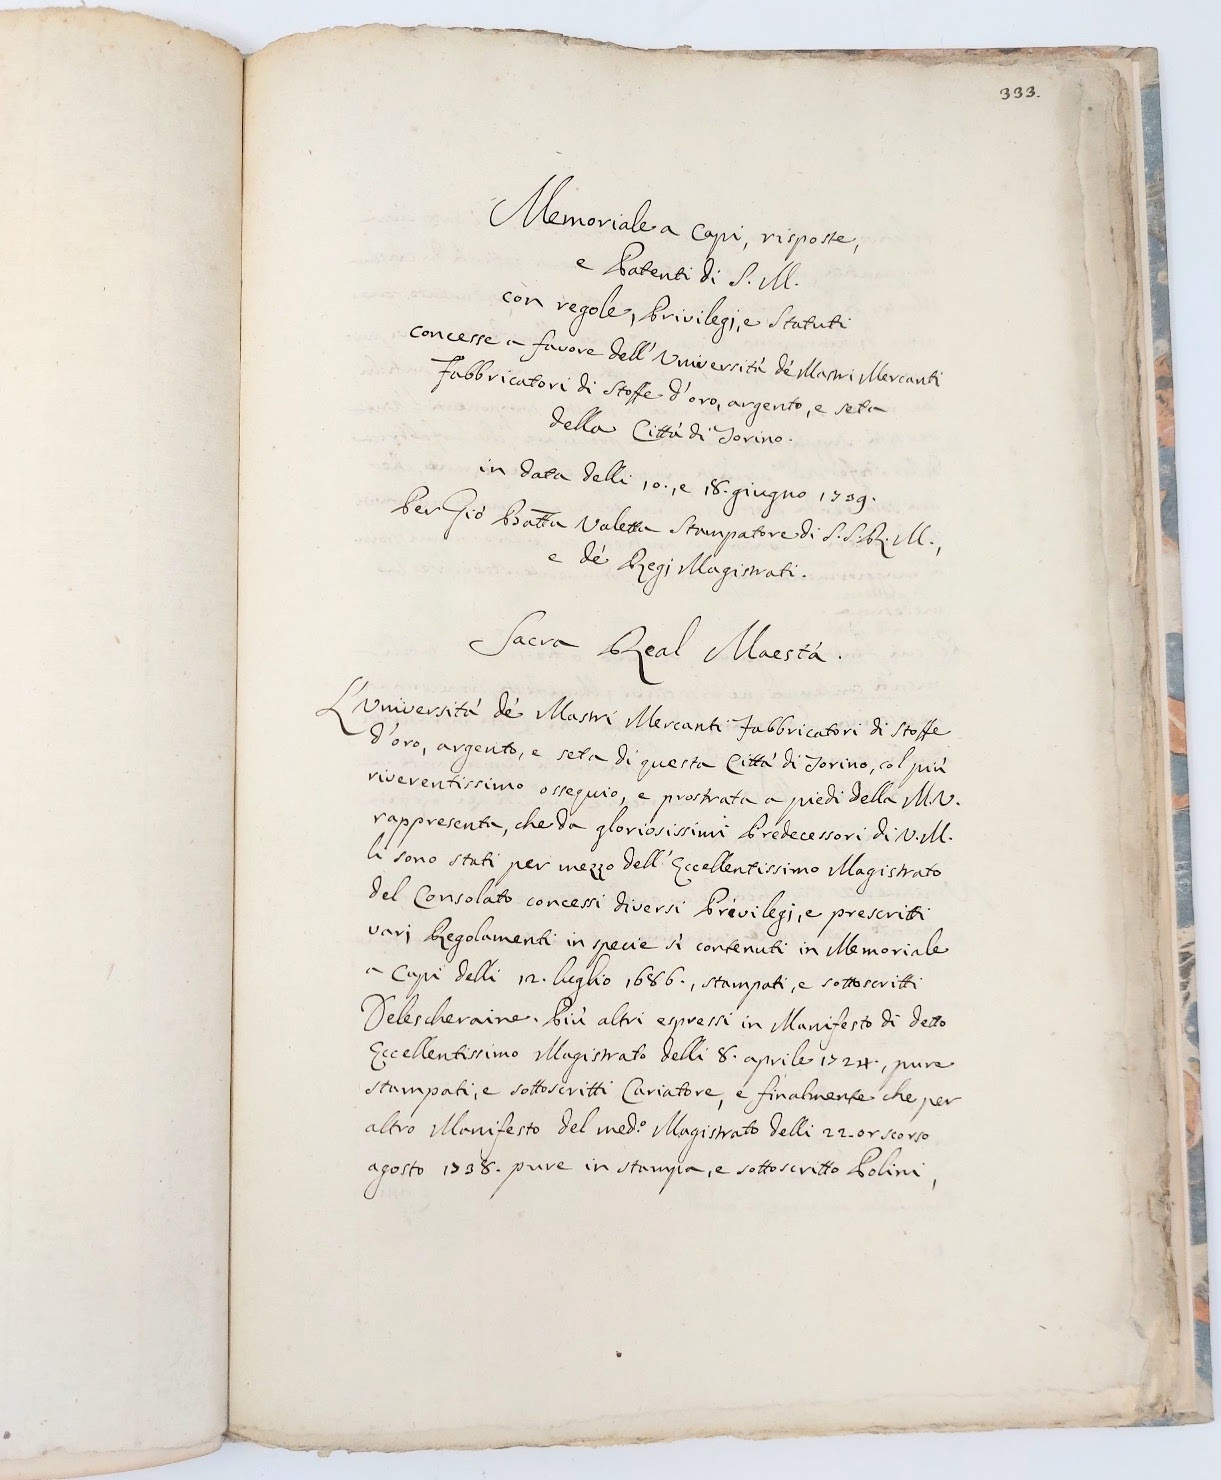 333.
Memoriale a Capi, risposte,
e Patenti di S. M.
con regole, Privilegj, e Statuti
concesse a favore dell'Università dé Mastri Mercanti
Fabbricatori di Stoffe d'oro, argento, e seta
della Città di Torino.
in data delli 10., e 18. giugno 1739.
Per Gió Batta Valetta Stampatore di S. S. R. M.,
e dé Regj Magistrati.
Sacra Real Maestà.
L'Università dé Mastri Mercanti Fabbricatori di Stoffe
d'oro, argento, e seta di questa Città di Torino, col più
riverentissimo ossequio, e prostrata a piedi della M.V.
rappresenta, che da gloriosissimi Predecessori di V.M.
li sono stati per mezzo dell'Eccellentissimo Magistrato
del Consolato concessi diversi Privilegj, e prescritti
varj Regolamenti in specie sì contenuti in Memoriale
a Capi delli 12. luglio 1686., stampati, e sottoscritti
Delescheraine. Più altri espressi in Manifesto di detto
Eccellentissimo Magistrato delli 8. aprile 1724., pure
stampati, e sottoscritti Cariatore, e finalmente che per
altro Manifesto del med.o Magistrato delli 22. or scorso
agosto 1738. pure in stampa, e sottoscritto Polini,